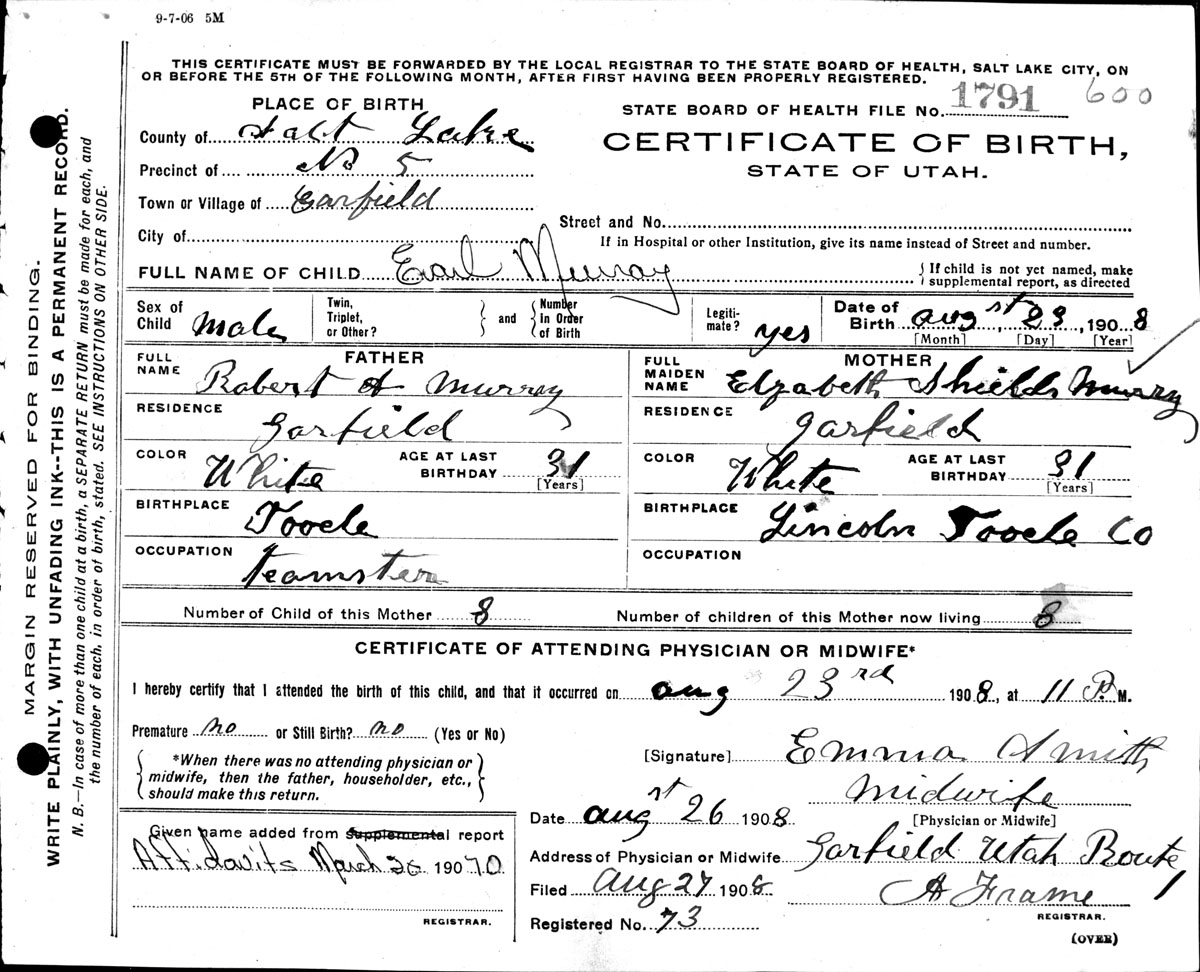 9-7-06 5M
THIS CERTIFICATE MUST BE FORWARDED BY THE LOCAL REGISTRAR TO THE STATE BOARD OF HEALTH, SALT LAKE CITY, ON
OR BEFORE THE 5TH OF THE FOLLOWING MONTH, AFTER FIRST HAVING BEEN PROPERLY REGISTERED.
MARGIN RESERVED FOR BINDING.
WRITE PLAINLY, WITH UNFADING INK--THIS IS A PERMANENT RECORD.
N. B.—In case of more than one child at a birth, a SEPARATE RETURN must be made for each, and
the number of each, in order of birth, stated. SEE INSTRUCTIONS ON OTHER SIDE.
PLACE OF BIRTH
STATE BOARD OF HEALTH FILE No. 1791 600
County of Salt Lake
CERTIFICATE OF BIRTH,
Precinct of No 5
STATE OF UTAH.
Town or Village of Garfield
Street and No.
City of
If in Hospital or other Institution, give its name instead of Street and number.
FULL NAME OF CHILD Earl Murray
If child is not yet named, make
supplemental report, as directed
Sex of Child Male
Twin, Triplet, or Other?
and
Number In Order of Birth
Legiti-mate? yes
Date of Birth Augst 23, 1908
[Month] [Day] [Year]
FATHER
FULL NAME Robert A Murray
RESIDENCE Garfield
COLOR White
AGE AT LAST BIRTHDAY 31
[Years]
BIRTHPLACE Tooele
OCCUPATION Teamster
MOTHER
FULL MAIDEN NAME Elzabeth Shields Murry
RESIDENCE Garfield
COLOR White
AGE AT LAST BIRTHDAY 31
[Years]
BIRTHPLACE Lincoln Tooele Co
OCCUPATION
Number of Child of this Mother 8
Number of children of this Mother now living 8
CERTIFICATE OF ATTENDING PHYSICIAN OR MIDWIFE*
I hereby certify that I attended the birth of this child, and that it occurred on aug 23rd 1908, at 11 P. M.
Premature no or Still Birth? no (Yes or No)
*When there was no attending physician or
midwife, then the father, householder, etc.,
should make this return.
[Signature] Emma Smith
Midwife
[Physician or Midwife]
Date augst 26 1908
Address of Physician or Midwife Garfield Utah Route 1
Filed Aug 27 1908
A Frame
REGISTRAR.
Registered No. 73
(OVER)
Given name added from Supplemental report
Affidavits March 26 19070
REGISTRAR.